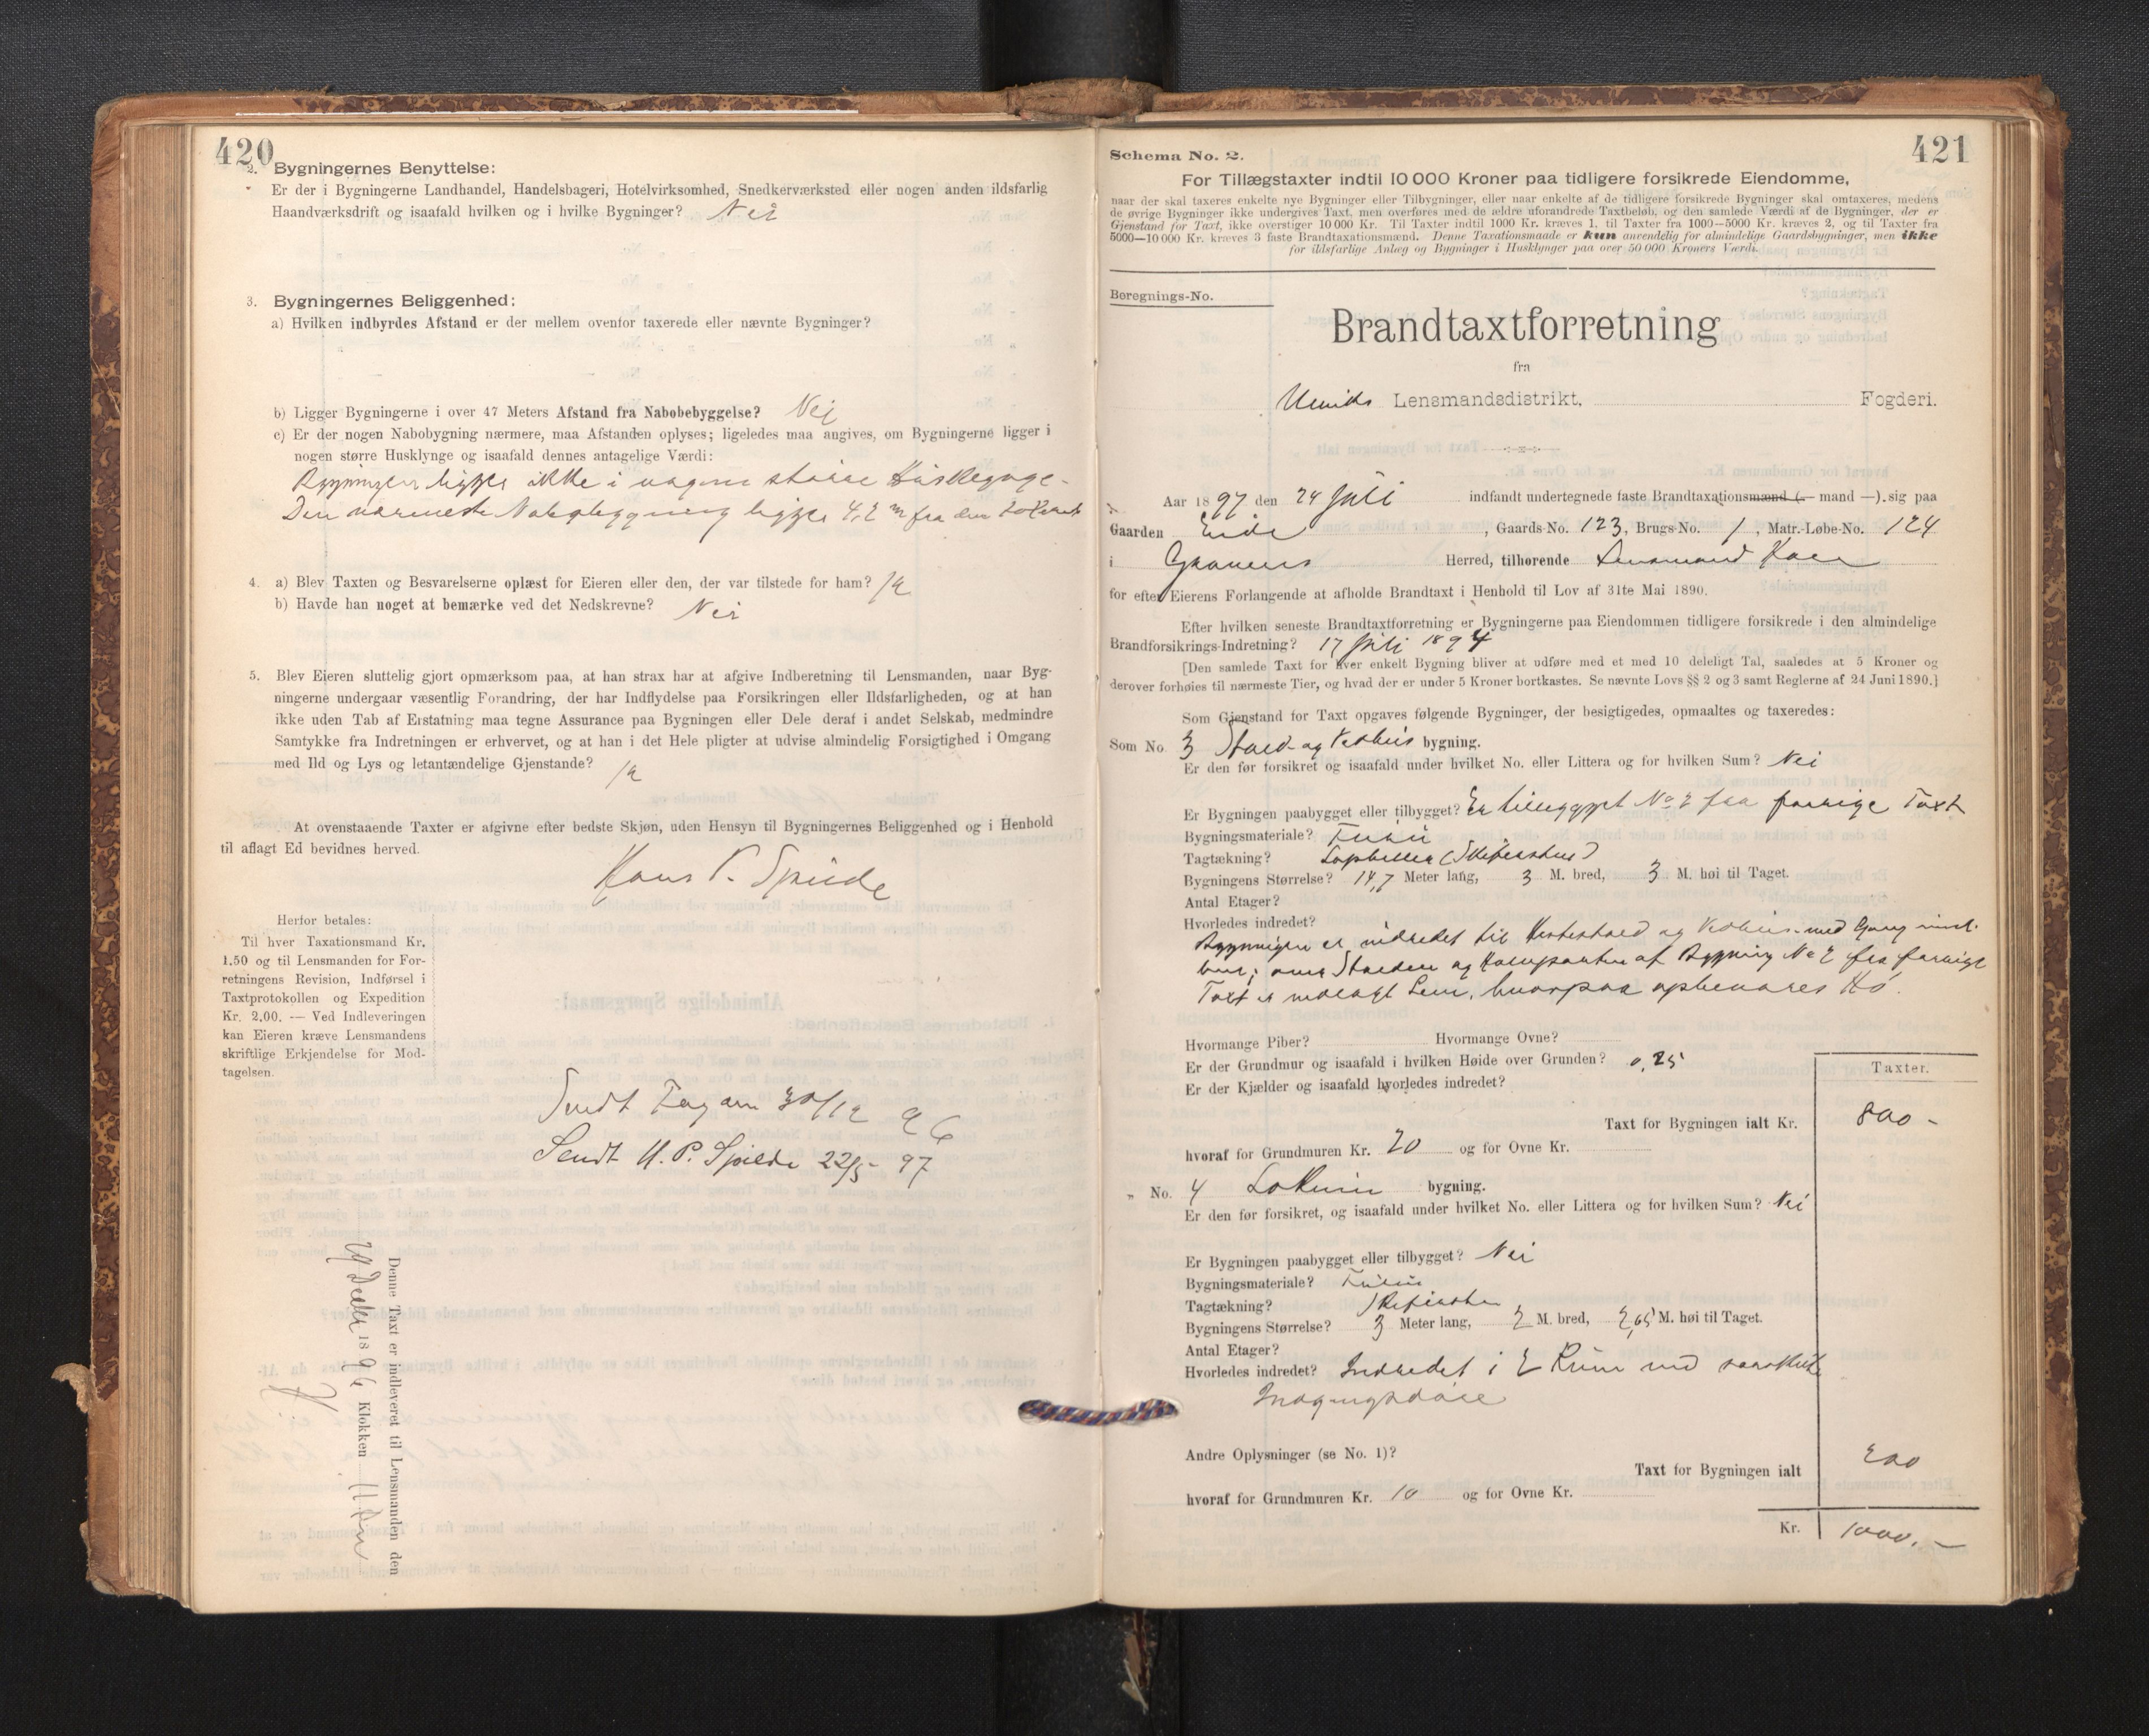 420
2. Bygningernes Benyttelse:
Er der i Bygningerne Landhandel, Handelsbageri, Hotelvirksomhed, Snedkerværksted eller nogen anden ildsfarlig
Haandværksdrift og isaafald hvilken og i hvilke Bygninger? Nei
3. Bygningernes Beliggenhed:
a) Hvilken indbyrdes Afstand er der mellem ovenfor taxerede eller nævnte Bygninger?
b) Ligger Bygningerne i over 47 Meters Afstand fra Nabobebyggelse? Nei
c) Er der nogen Nabobygning nærmere, maa Afstanden oplyses; ligeledes maa angives, om Bygningerne ligger i
nogen større Husklynge og isaafald dennes antagelige Værdi:
Bygningen ligger ikke i nogen større Husklynge.
Den nærmeste Nabobygning ligger 4,2 m fra den
4. a) Blev Taxten og Besvarelserne oplæst for Eieren eller den, der var tilstede for ham? Ja
b) Havde han noget at bemærke ved det Nedskrevne? Nei
5. Blev Eieren sluttelig gjort opmærksom paa, at han strax har at afgive Indberetning til Lensmanden, naar Byg-
ningerne undergaar væsentlig Forandring, der har Indflydelse paa Forsikringen eller Ildsfarligheden, og at han
ikke uden Tab af Erstatning maa tegne Assurance paa Bygningen eller Dele deraf i andet Selskab, medmindre
Samtykke fra Indretningen er erhvervet, og at han i det Hele pligter at udvise almindelig Forsigtighed i Omgang
med Ild og Lys og letantændelige Gjenstande? Ja
At ovenstaaende Taxter er afgivne efter bedste Skjøn, uden Hensyn til Bygningernes Beliggenhed og i Henhold
til aflagt Ed bevidnes herved.
Hans P. Spilde
Herfor betales:
Til hver Taxationsmand Kr.
1.50 og til Lensmanden for For-
retningens Revision, Indførsel i
Taxtprotokollen og Expedition
Kr. 2.00. — Ved Indleveringen
kan Eieren kræve Lensmandens
skriftlige Erkjendelse for Mod-
tagelsen.
Sendt 30/12 96
Sendt H. P. Spilde 22/5 - 97
Denne Taxt er indleveret til Lensmanden den
1896 Klokken 11
421
Schema No. 2.
For Tillægstaxter indtil 10 000 Kroner paa tidligere forsikrede Eiendomme,
naar der skal taxeres enkelte nye Bygninger eller Tilbygninger, eller naar enkelte af de tidligere forsikrede Bygninger skal omtaxeres, medens
de øvrige Bygninger ikke undergives Taxt, men overføres med de ældre uforandrede Taxtbeløb, og den samlede Værdi af de Bygninger, der er
Gjenstand for Taxt, ikke overstiger 10 000 Kr. Til Taxter indtil 1000 Kr. kræves 1, til Taxter fra 1000—5000 Kr. kræves 2, og til Taxter fra
5000—10 000 Kr. kræves 3 faste Brandtaxationsmænd. Denne Taxationsmaade er kun anvendelig for almindelige Gaardsbygninger, men ikke
for ildsfarlige Anlæg og Bygninger i Husklynger paa over 50 000 Kroners Værdi.
Beregnings-No.
Brandtaxtforretning
fra
Ulviks Lensmandsdistrikt, Fogderi.
Aar 1897 den 24 Juli indfandt undertegnede faste Brandtaxationsmænd (— mand —) sig paa
Gaarden Eide, Gaards-No. 123, Brugs-No. 1, Matr.-Løbe-No. 124
i Gravens Herred, tilhørende Lensmand
for efter Eierens Forlangende at afholde Brandtaxt i Henhold til Lov af 31te Mai 1890.
Efter hvilken seneste Brandtaxtforretning er Bygningerne paa Eiendommen tidligere forsikrede i den almindelige
Brandforsikrings-Indretning? 17 Juli 1894
[Den samlede Taxt for hver enkelt Bygning bliver at udføre med et med 10 deleligt Tal, saaledes at 5 Kroner og
derover forhøies til nærmeste Tier, og hvad der er under 5 Kroner bortkastes. Se nævnte Lovs §§ 2 og 3 samt Reglerne af 24 Juni 1890.]
Som Gjenstand for Taxt opgaves følgende Bygninger, der besigtigedes, opmaaltes og taxeredes:
Som No. 3 Stald- og Vedhus bygning.
Er den før forsikret og isaafald under hvilket No. eller Littera og for hvilken Sum? Nei
Er Bygningen paabygget eller tilbygget? Er tilbygget No 2 fra forrige Taxt
Bygningsmateriale?
Tagtækning?
Bygningens Størrelse? 14,7 Meter lang, 3 M. bred, 3 M. høi til Taget.
Antal Etager?
Hvorledes indredet?
Bygningen er indredet til Hestestald og Vedhus med Gang
over Stalden og af Bygning No 2 fra forrige
Taxt er indlagt Lem, hvorpaa opbevares Hø.
Hvormange Piber? Hvormange Ovne?
Er der Grundmur og isaafald i hvilken Høide over Grunden? 0,25
Er der Kjælder og isaafald hvorledes indredet?
Taxter.
Taxt for Bygningen ialt Kr. 800 -
hvoraf for Grundmuren Kr. 20 og for Ovne Kr.
" No. 4 bygning.
Er den før forsikret, og isaafald under hvilket No. eller Littera og for hvilken Sum? Nei
Er Bygningen paabygget eller tilbygget? Nei
Bygningsmateriale?
Tagtækning?
Bygningens Størrelse? 3 Meter lang, 2 M. bred, 2,65 M. høi til Taget.
Antal Etager?
Hvorledes indredet? Indredet i 2 Rum med særskilte
Indgangsdøre
Andre Oplysninger (se No. 1)?
Taxt for Bygningen ialt 200
hvoraf for Grundmuren Kr. 10 og for Ovne Kr.
Kr. 1000.-